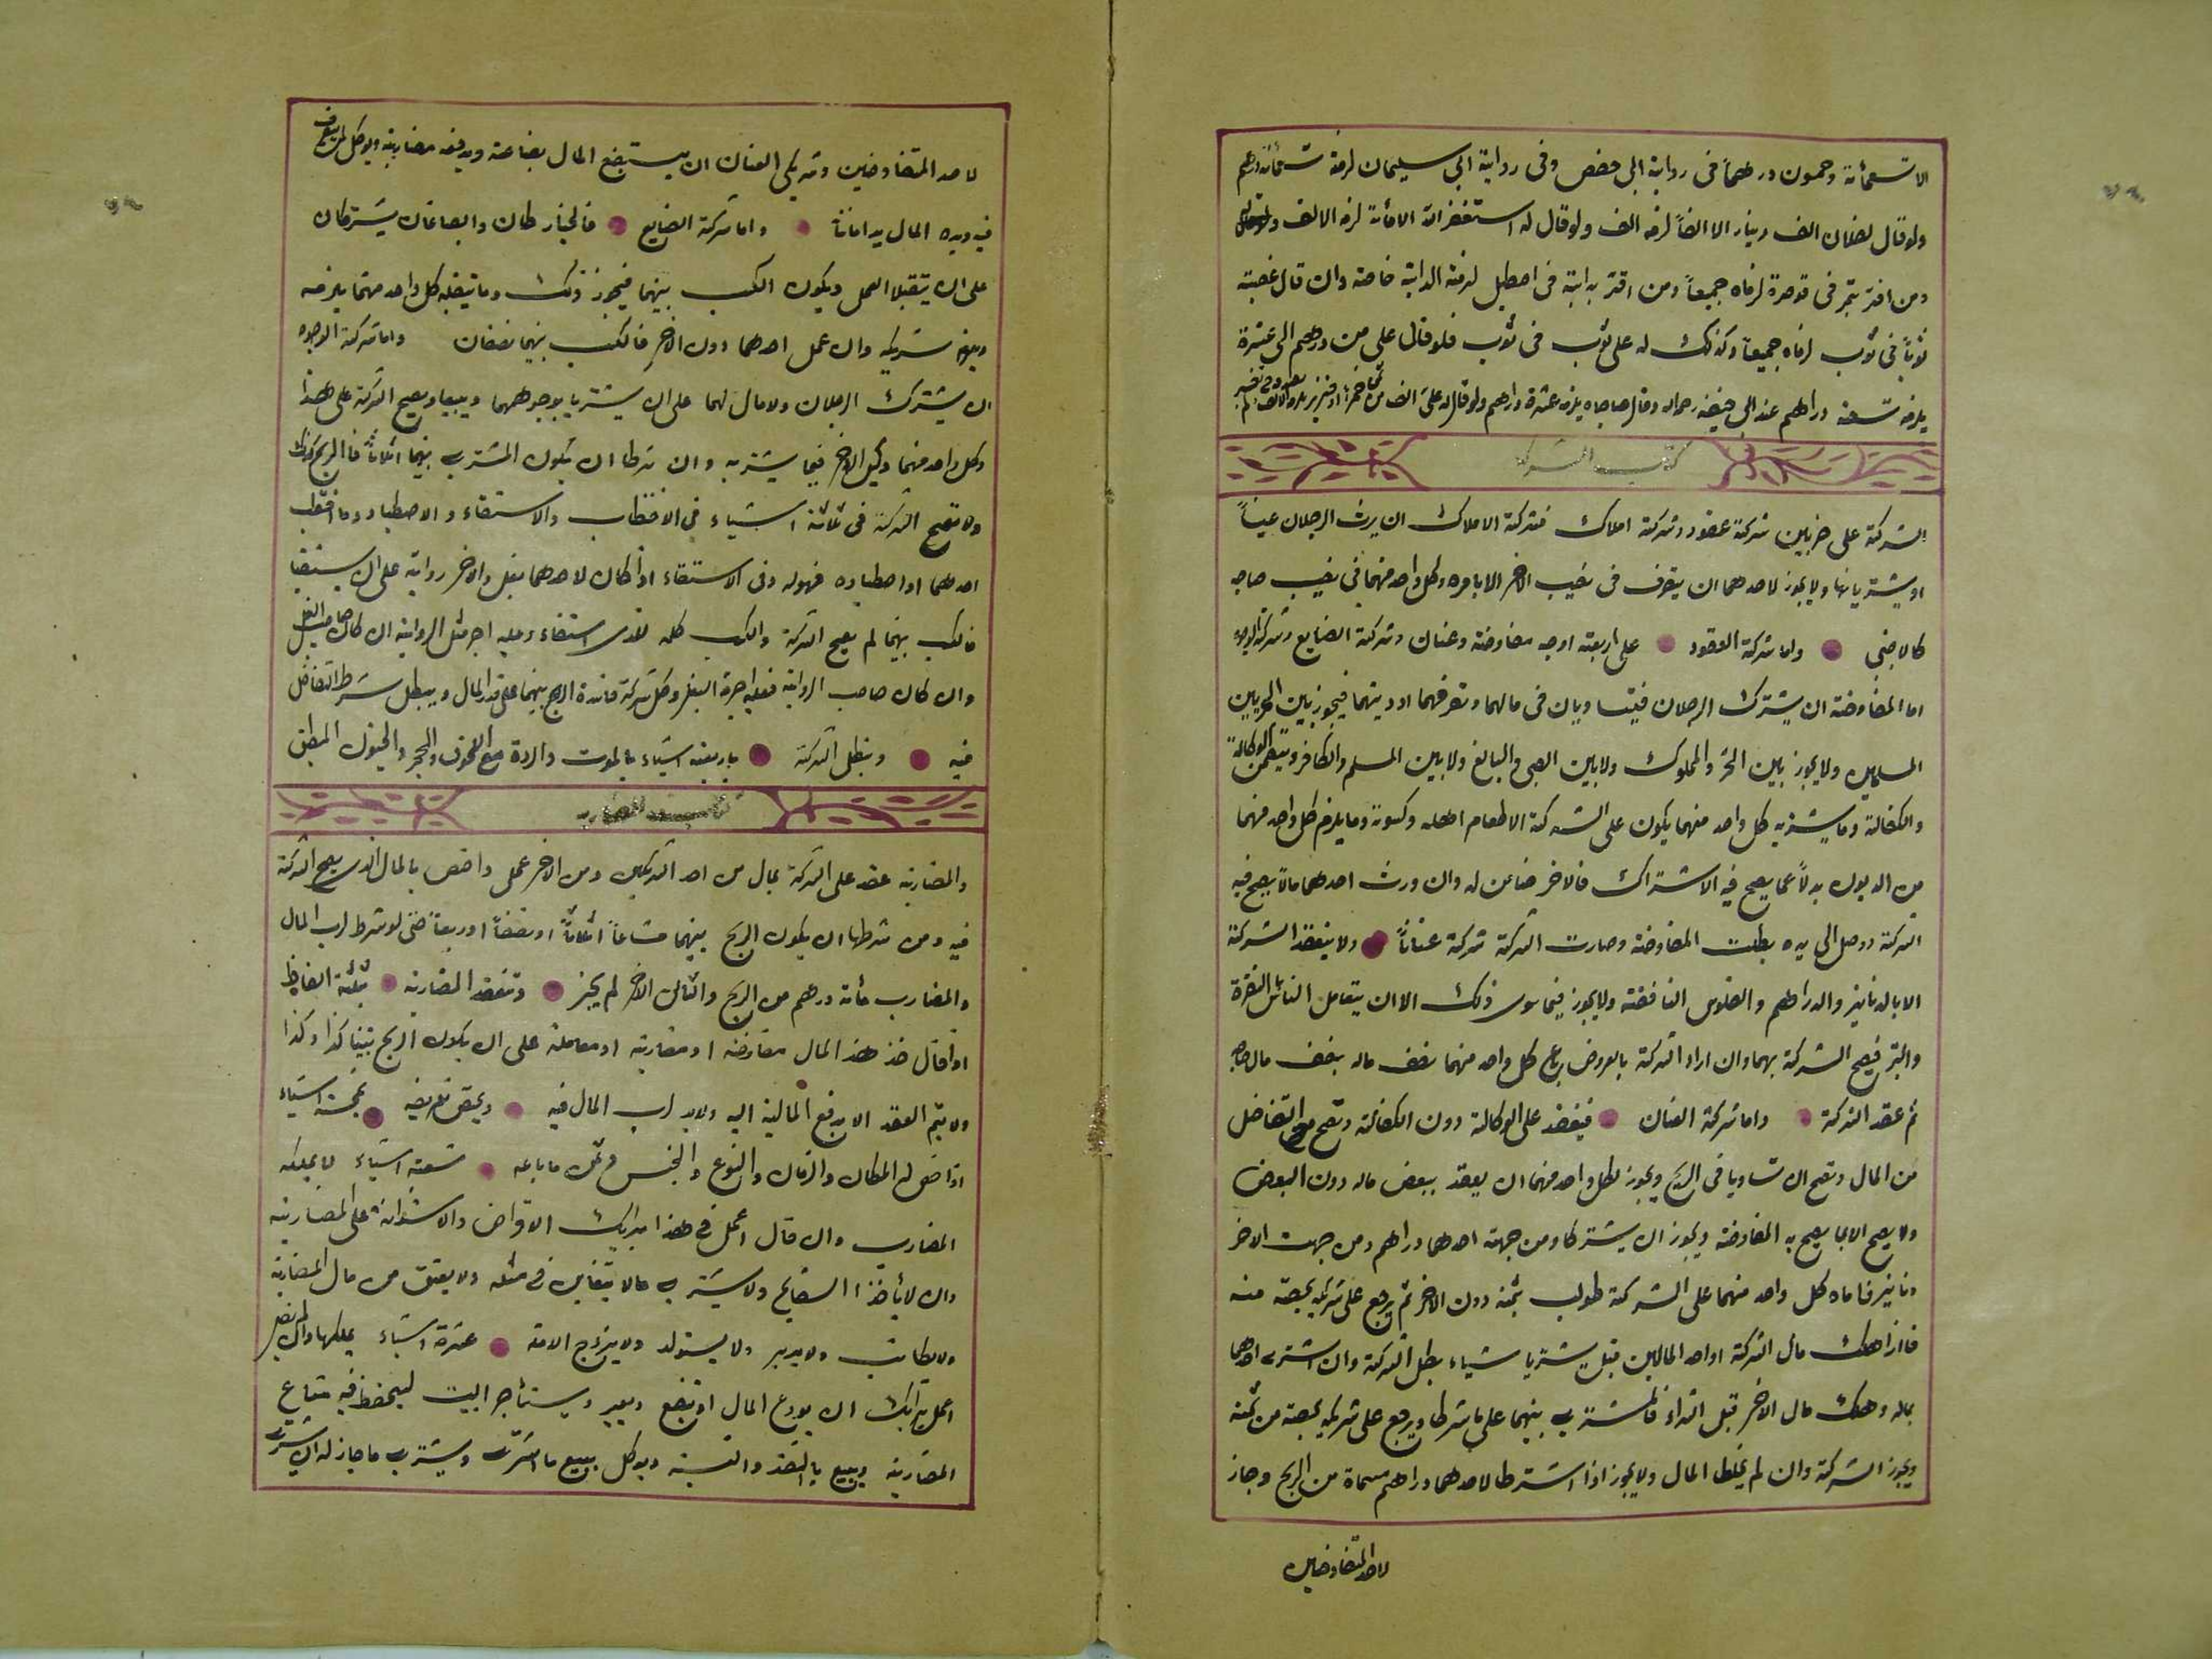 الا تسعمائة وخمسون درهماً فى رواية ابى حفص وفى رواية ابى سليمان لزمه تسعمائة درهم
ولو قال لفلان الف دينار الا الفاً لزمه الف ولو قال له استغفر الله الا مائة لزمه الالف
ومن اقر بتمر فى قوصرة لزماه جميعاً ومن اقر بدابة فى اصطبل لزمته الدابة خاصة وان قال غصبته
ثوباً فى ثوب لزماه جميعاً وكذلك له على ثوب فى ثوب فلو قال على من درهم الى عشرة
يلزمه تسعة دراهم عند ابى حنيفة رحمه الله وقال صاحباه يلزمه عشرة دراهم ولو قال له على الف من ثمن خمر او خنزير
كتاب الشركة
الشركة على ضربين شركة عقود وشركة املاك فشركة الاملاك ان يرث الرجلان عيناً
او يشتريانها ولا يجوز لاحدهما ان يتصرف فى نصيب الاخر الا بامره وكل واحد منهما فى نصيب صاحبه
كالاجنبى واما شركة العقود على اربعة اوجه مفاوضة وعنان وشركة الصنايع وشركة الوجوه
اما المفاوضة ان يشترك الرجلان فيتساويان فى مالهما وتصرفهما او دينهما فيجوز بين الحريين
المسلمين ولا يجوز بين الحر والمملوك ولا بين الصبى والبالغ ولا بين المسلم والكافر وتتضمن الوكالة
والكفالة وما يشتريه كل واحد منهما يكون على الشركة الا طعام اهله وكسوته وما يلزم كل واحد منهما
من الديون بدلاً عما يصح فيه الاشتراك فالاخر ضامن له وان ورث احدهما مالا يصح فيه
الشركة ووصل الى يده بطلت المفاوضة وصارت الشركة شركة عناناً ولا ينعقد الشركة
الا بالدنانير والدراهم والفلوس النافقة ولا يجوز فيما سوى ذلك الا ان يتعامل الناس بالنقرة
والتبر فيصح الشركة بهما وان اراد الشركة بالعروض باع كل واحد منهما نصف ماله بنصف مال صاحبه
ثم عقد الشركة واما شركة العنان فينعقد على الوكالة دون الكفالة وتصح مع التفاضل
من المال وتصح ان تساويا فى الربح ويجوز لكل واحد منهما ان يعقد ببعض ماله دون البعض
ولا يصح الا بما يصح به المفاوضة ويجوز ان يشتركا ومن جهة احدهما دراهم ومن جهت الاخر
دنانير فاماه كل واحد منهما على الشركة طولب بثمنه دون الاخر ثم يرجع على شريكه بحصته منه
فاذا هلك مال الشركة او احد المالين قبل يشتريا شياء بطل الشركة وان اشترى احدهما
بماله وهلك مال الاخر قبل الشراء فالمشترى بينهما على ما شرطا ويرجع على شريكه بحصته من ثمنه
ويجوز الشركة وان لم يخلط المال ولا يجوز اذا اشترطا لاحدهما دراهم مسماة من الربح وجاز
لاحد المتفاوضين
لاحد المتفاوضين وشريكى العنان ان يستبضع المال بضاعة ويدفعه مضاربة ويوكل
فيه ويده المال يد اماناً واما شركة الصنايع فالخياطان والصباغان يشتركان
على ان يتقبلا العمل ويكون الكسب بينهما فيجوز ذلك وما يتقبله كل واحد منهما يلزمه
ويلزم شريكه وان عمل احدهما دون الاخر فالكسب بينهما نصفان واما شركة الوجوه
ان يشترك الرجلان ولا مال لهما على ان يشتريا بوجوههما ويبيعا ويصح الشركة على هذا
وكل واحد منهما وكيل الاخر فيما يشتريه وان شرطا ان يكون المشترى بينهما اثلاثاً فالربح كذلك
ولا تصح الشركة فى ثلاثة اشياء فى الاحتطاب والاستقاء والاصطياد وما احتطب
احدهما او اصطاده فهو له وفى الاستقاء اذا كان لاحدهما بغل والاخر رواية على ان يستقيا
فالكسب بينهما لم يصح الشركة والكسب كله للذى استقاء وعليه اجر مثل الرواية ان كان صاحب البغل
وان كان صاحب الرواية فعليه اجرة البغل وكل شركة فاسدة الربح بينهما على قدر المال ويبطل شرط التفاضل
فيه وتبطل الشركة باربعة اشياء بالموت والردة مع اللحوق والحجر والجنون المطبق
كتاب المضاربه
والمضاربة عقد على الشركة بمال من احد الشريكين ومن الاخر عمل واختص بالمال الذى يصح الشركة
فيه ومن شرطها ان يكون الربح بينهما مشاعاً اثلاثاً او نصفاً او ربعاً حتى لو شرط لرب المال
والمضارب مائة درهم من الربح والثالث الاخر لم يجز وتنعقد المضاربة بثلثة الفاظ
اذا قال خذ هذا المال مقارضة او مضاربة او معاملة على ان يكون الربح بيننا كذا وكذا
ولا يتم العقد الا بدفع المالية اليه ولا يد لرب المال فيه ويختص تفريضه بخمسة اشياء
اذا خص له المكان والزمان والنوع والجنس ومن ما باعه تسعة اشياء لا يملكه
المضارب وان قال اعمل فى هذا برايك الاقراض والاستدانة على المضاربة
وان لا يأخذ السفايح ولا يشترى ما لا يتغابن فى مثله ولا يعتق من مال المضاربة
ولا يكاتب ولا يدبر ولا يستولد ولا يزوج الامة عشرة اشياء يملكها وان لم يقل
اعمل برايك ان يودع المال او يبضع ويعير ويستأجر البيت ليحفظ فيه متاع
المضاربة ويبيع بالنقد والنسية ويوكل ببيع ما اشترى ويشترى ما جاز له ان يشترى